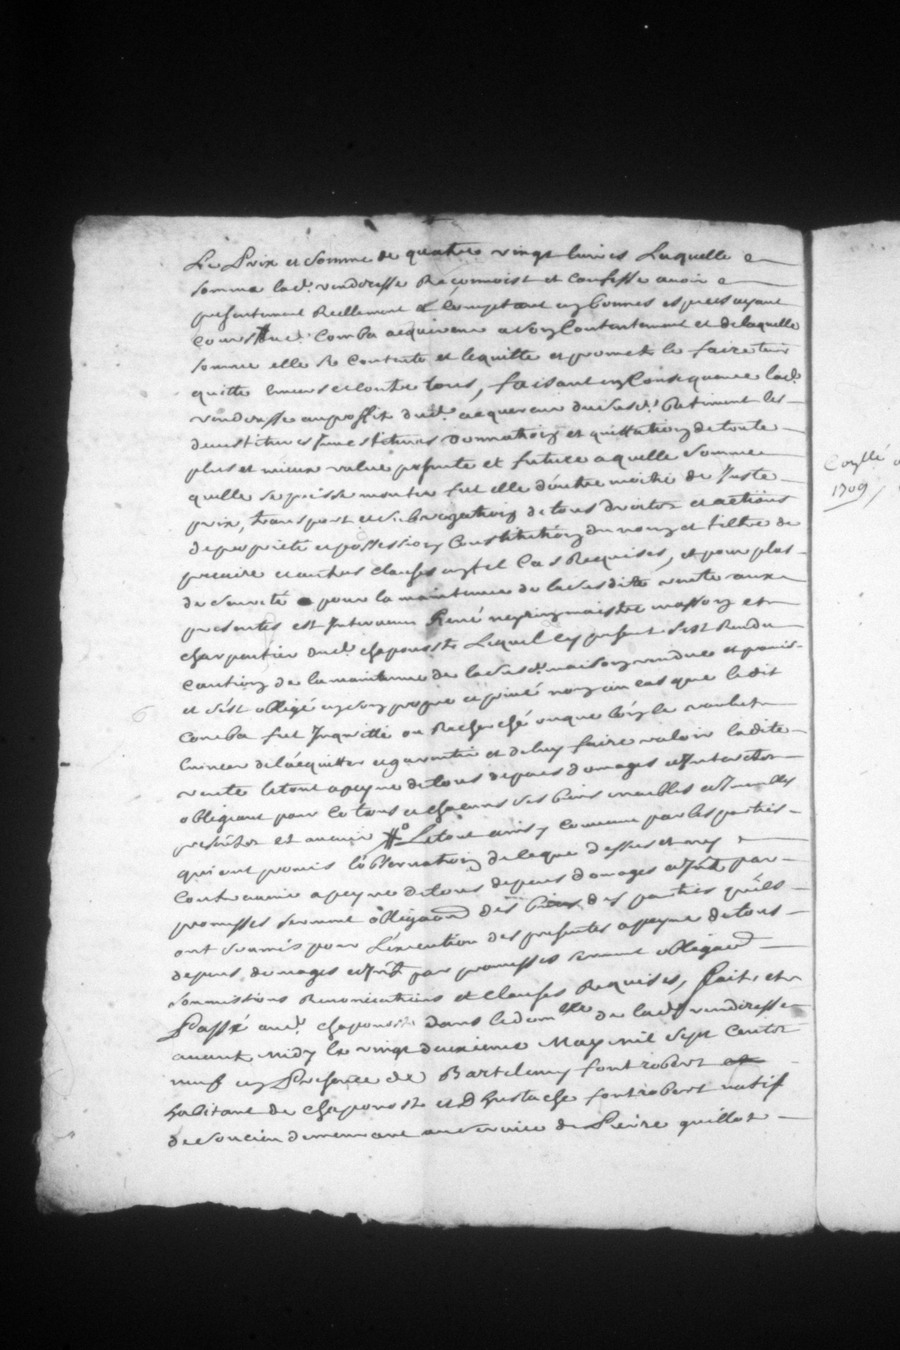 Le Prix et somme de quatres vingt livres Laquelle
somme lad. venderesse Reconnoist et confesse avoir
presentement Reellement et comptant en bonnes especes ayant
cours dud. Comba acquereur a son Contantement et de laquelle
somme elle se contente et lequitte et promet le faire tenir
quitte envers et contre tous, faisant en Consequence lad.
venderesse au proffit dud. acquereur du susd. batiment les
devestitures Investitures donnation et quittation de toute
plus et mieux value presente et future a quelle somme
quelle se puisse monter fut elle d'outre moitié de Juste
prix, transport et subrogation de tous droits et actions
de proprieté et possession Constitution du nom et tiltre de
precaire et autres clauses en tel Cas Requises, et pour plus
de seureté pour la maintenue de la susditte vente aux
presentes est Intervenu René neyrin maistre masson et
charpentier dud. chaponoste Lequel cy present s'est Rendu
caution de la maintenue de la susd. maison vendue et
et s'est obligé en son propre et privé nom en cas que ledit
Comba fut Inquitté ou Recherché
de l'acquitter et garentir et de luy faire valoir ladite
vente le tout a peyne de tous depens domages et Interetz
obligeant pour ce tous et chacuns ses biens meubles et Immeubles
presents et avenir Letout ainsy convenu par les parties
qui ont promis l'observation de ce que dessus et ny
contrevenir a peyne de tous depens domages et Int par
promesses serment obligaon des biens des parties qu'ils
ont soumis pour L'execution des presentes a peyne de tous
depens, domages et Int par promesses serment obligaon
soumissions Renonciations et clauses Requises, Fait, et
Passé aud. chaponoste dans le domlle de lad. venderesse
avant midy le vingt deuxieme May mil sept Centz
neuf en Presence de Bartelemy fontrobert
habitant de chaponoste et D'hustache fontrobert natif
de Soucieu demeurant au service de Pierre quillot
1709